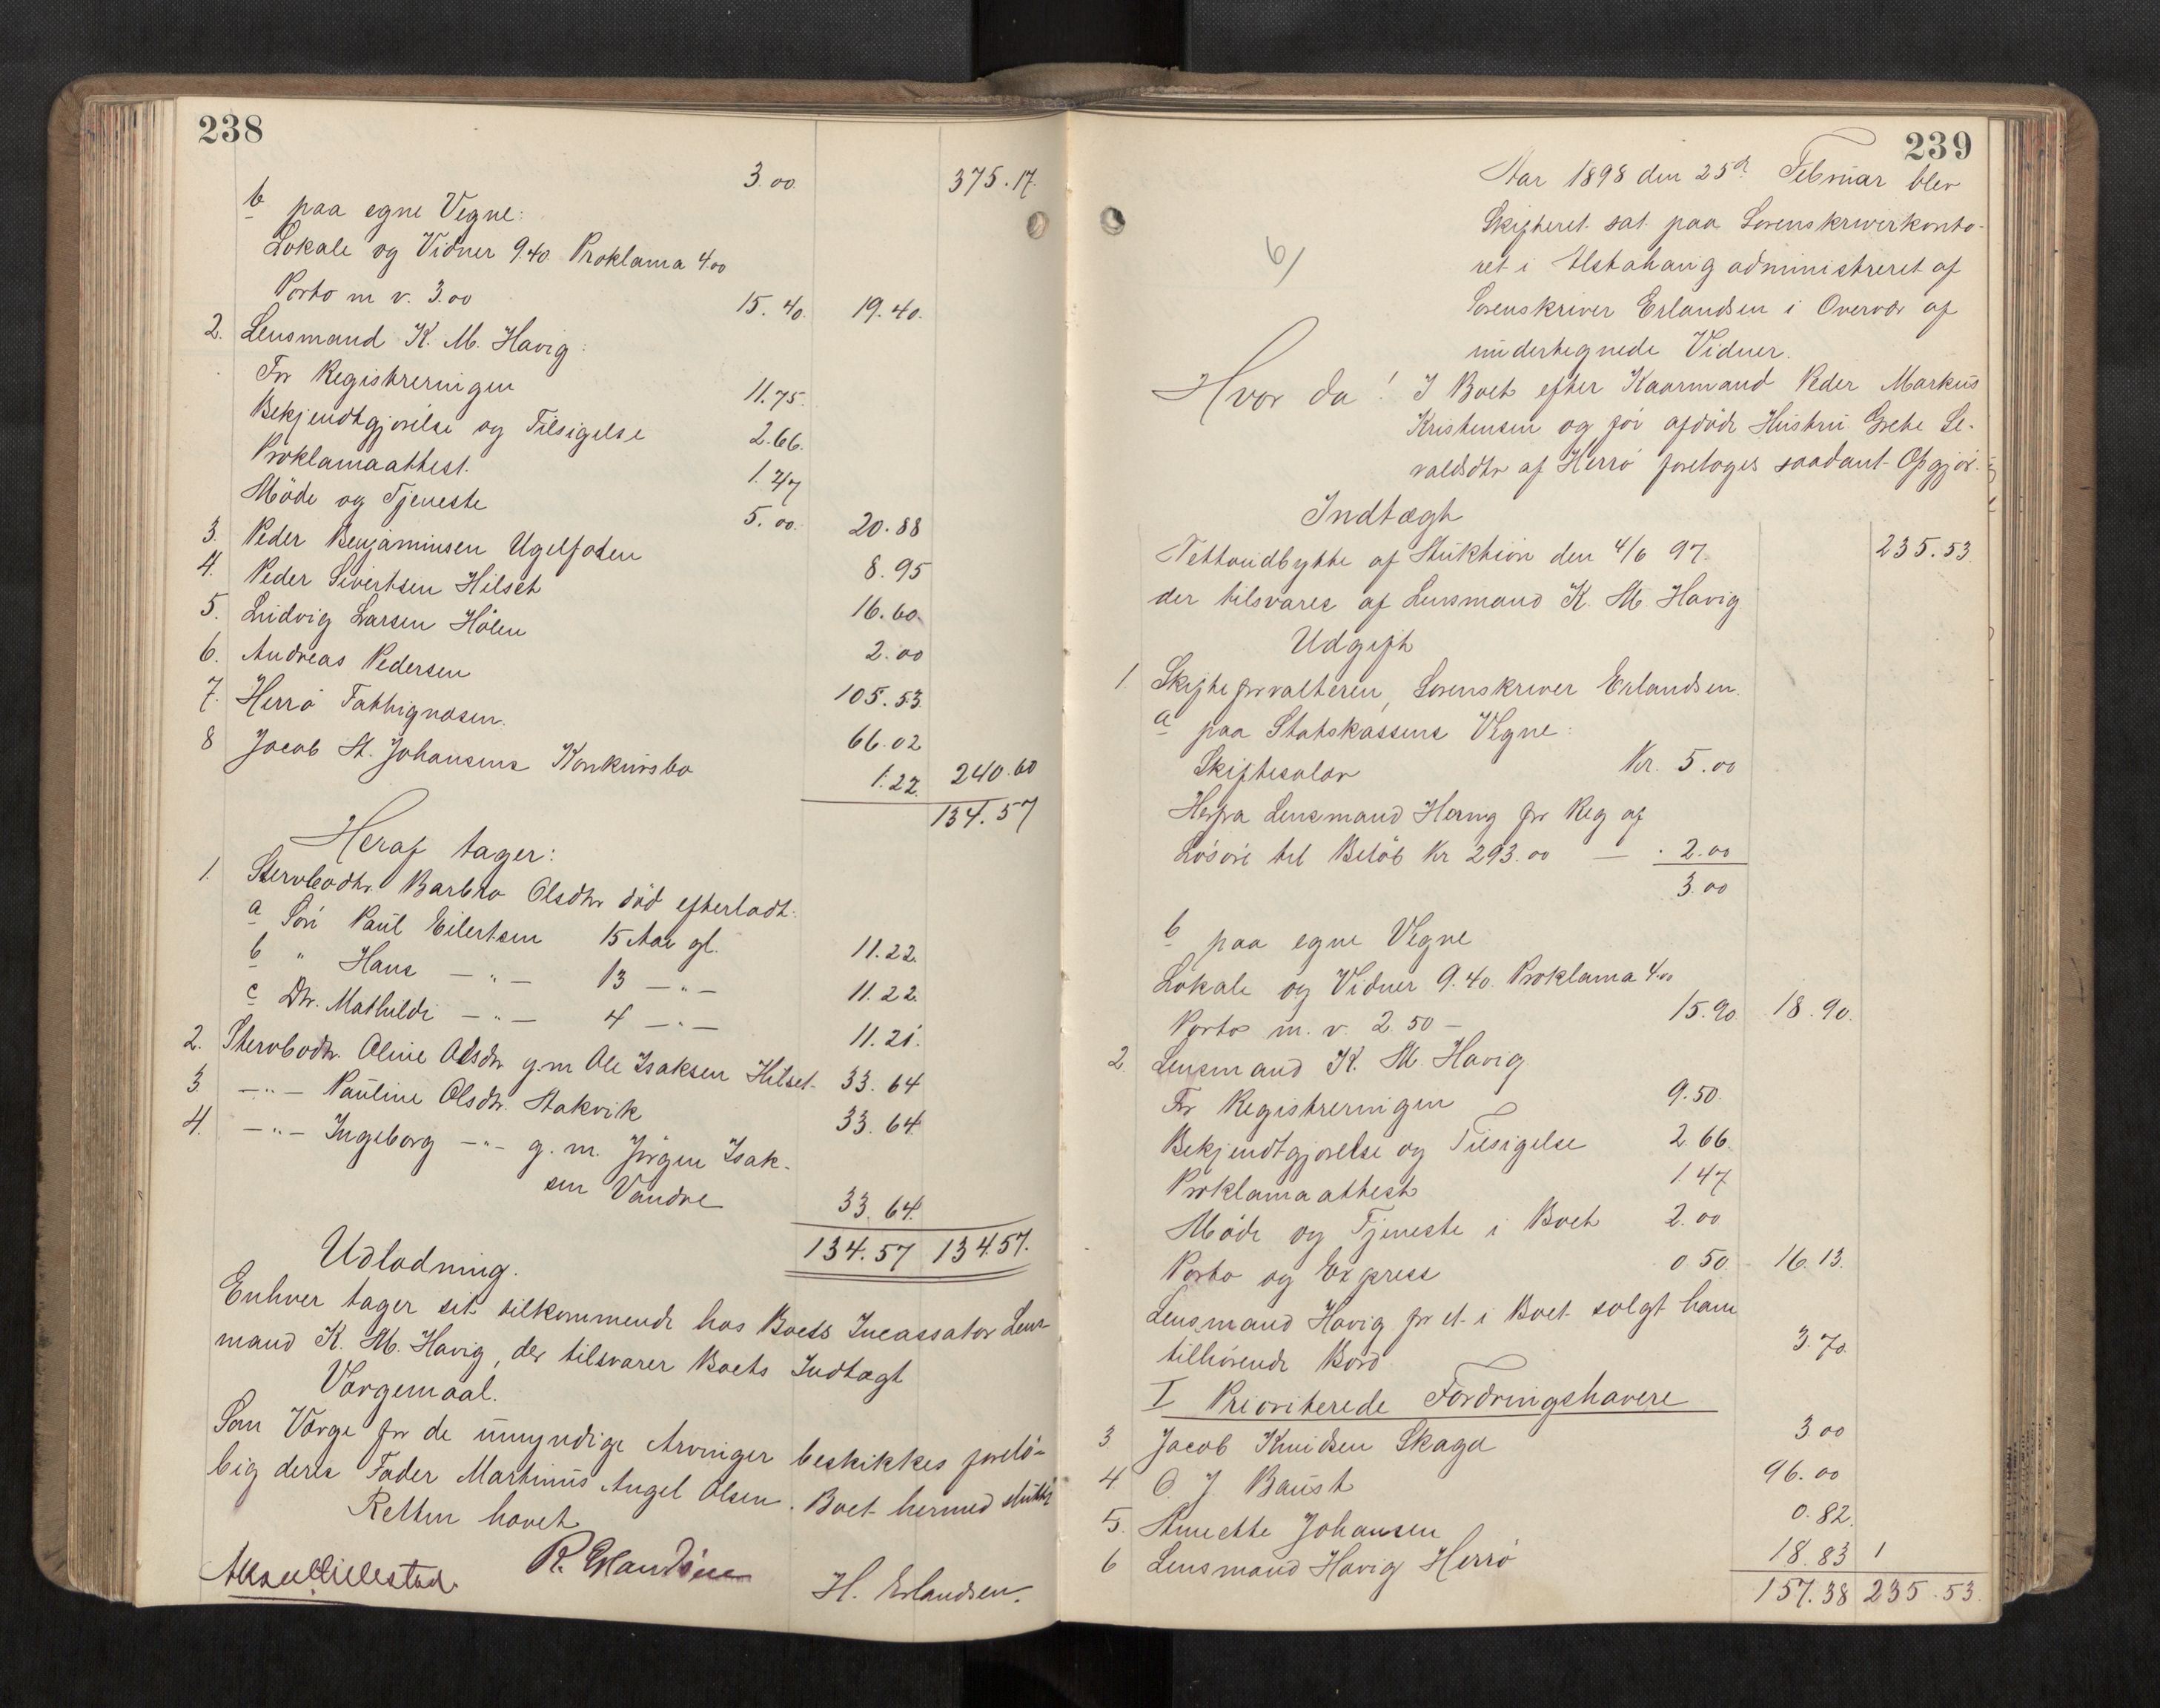 238
3.00 375.17.
b paa egne Vegne:
Lokale og Vidner 9.40 Proklama 4.00
Porto m. v. 3.00 15.40. 19.40.
2. Lensmand K. M. Havig:
For Registreringen 11.75.
Bekjendtgjørelse og Tilsigelse 2.66.
Proklamaattest. 1.47
Möde og Tjeneste 5.00. 20.88
3. Peder Benjaminsen 8.95
4. Peder Sivertsen Hilset 16.60.
5. Ludvig Larsen Hölen 2.00
6. Andreas Pedersen 105.53.
7. Herrö Fattigvæsen. 66.02
8 Jacob St. Johansens Konkursbo 1.22. 240.60
134.57
Heraf tager:
1. Stervbodtr. Barbro Olsdtr död efterladt:
a Sön Paul Eilertsen 15 Aar gl. 11.22.
b " Hans —"— 13 —"— 11.22.
c Dtr. Mathilde —"— 4 —"— 11.21.
2. Stervbodtr. Oline Olsdtr g.m Ole Isaksen Hilset 33.64
3 —"— Pauline Olsdtr. Stokvik 33.64.
4. —"— Ingeborg —"— g.m. Jörgen Isak-
sen Vandve 33.64.
134.57 134.57.
Udlodning.
Enhver tager sit tilkommende hos Boets Incassator Lens-
mand K. M. Havig, der tilsvarer Boets Indtægt
Vergemaal.
Som Verge for de umyndige Arvinger beskikkes forelö-
big deres Fader Martinus Angel Olsen. Boet hermed sluttet
Retten hævet
R. Erlandsen
H. Erlandsen.
239
6)
Aar 1898 den 25de Februar blev
Skifteret sat paa Sorenskriverkonto-
ret i Alstahaug administreret af
Sorenskriver Erlandsen i Overvær af
undertegnede Vidner.
Hvor da! I Boet efter Kaarmand Peder Markus
Kristensen og för afdöde Hustru Grete Se-
valdsdtr af Herrö foretoges saadant Opgjör.
Indtægt
Nettoudbytte af Auktion den 4/6 97. 235.53.
der tilsvares af Lensmand K. M. Havig
Udgift
1. Skifteforvalteren, Sorenskriver Erlandsen.
a paa Statskassens Vegne:
Skiftesalær Kr. 5.00
Herfra Lensmand Havig for Reg af
Lösöre til Belöb Kr 293.00 — 2.00
3.00
b paa egne Vegne
Lokale og Vidner 9.40. Proklama 4.00
Porto m. v. 2.50 — 15.90. 18.90.
2. Lensmand K. M. Havig
For Registreringen 9.50.
Bekjendtgjørelse og Tilsigelse 2.66.
Proklamaattest 1.47
Möde og Tjeneste i Boet 2.00
Porto og Express 0.50. 16.13.
Lensmand Havig for et i Boet solgt ham
tilhörende Bord 3.70.
I Prioriterede Fordringshavere
3 Jacob Knudsen Skaga 3.00
4 O. J. Baust 96.00
5. Anette Johansen 0.82.
6 Lensmand Havig Herrö 18.83
157.38 235.53.